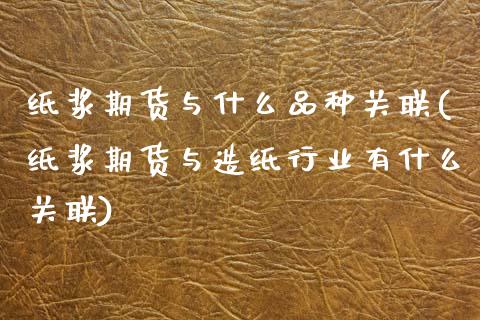 纸浆期货与什么品种关联(
纸浆期货与造纸行业有什么
关联)